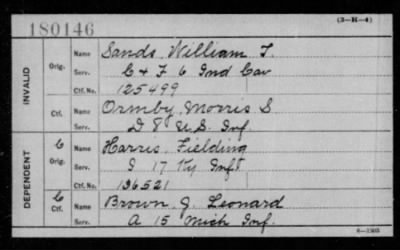 180146
(3—H—4)
INVALID
Orig.
Name Sands, William T.
Serv. C & F 6 Ind Cav
Ctf. No. 125499
Ctf.
Name Ormby, Morris S.
Serv. D 8 U.S. Inf.
DEPENDENT
C Orig.
Name Harris, Fielding
Serv. I 17 Ky Inft
Ctf. No. 136521
C Ctf.
Name Brown, J. Leonard
Serv. A 15 Mich Inf.